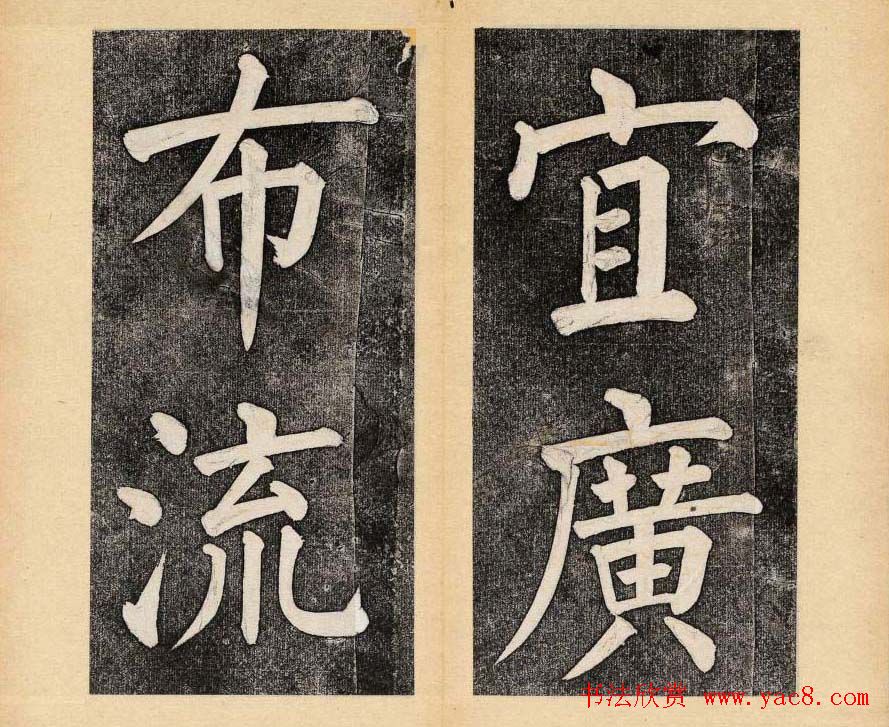 宜廣
布流
书法欣赏 www.yac8.com